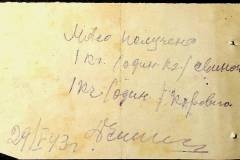 Мясо получено
1 кг. /один кг./ свиного
1 кг. /один / коровьего
29/I 43 г.